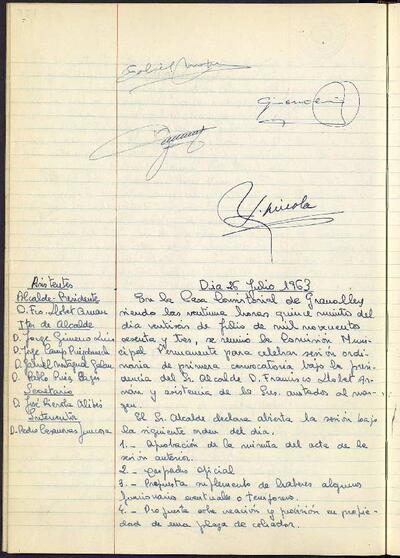 Dia 26 Julio 1963
Asistentes
Alcalde-Presidente
D. Fco. Llobet Arnan
Ttes de Alcalde
D. Jorge Gimeno
D. Jorge Camp
D.
D. Pablo Ruiz
Secretario
D. José
Interventor
D. Pedro Casanovas Juncosa
En la Casa Consistorial de Granollers
siendo las veintiuna horas quince minutos del
dia veintiseis de Julio de mil novecientos
sesenta y tres, se reunió la Comisión Muni-
cipal Permanente para celebrar sesión ordi-
naria de primera convocatoria bajo la presi-
dencia del Sr. Alcalde D. Francisco Llobet Ar-
nán y asistencia de los Sres. anotados al mar-
gen.
El Sr. Alcalde declara abierta la sesión bajo
la siguiente orden del dia.
1.- Aprobación de la minuta del acta de la
sesión anterior.
2.- Despacho oficial
3.- Propuesta suplemento de haberes algunos
funcionarios eventuales o temporeros.
4.- Propuesta sobre creación y provisión en propie-
dad de una plaza de cobrador.